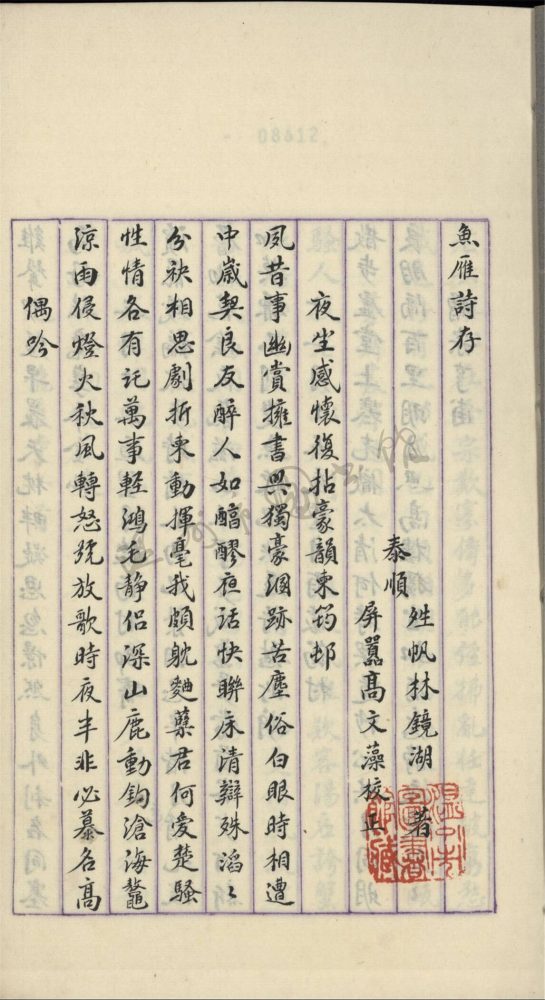 魚雁詩存
泰順
姓帆林鏡湖著
屏囂高文藻校正
夜坐感懷復拈豪韻柬筠邨
夙昔事幽賞擁書興獨豪溷跡苦塵俗白眼時相遭
中歲契良友醉人如醕醪夜話快聯床清辯殊滔〻
分袂相思劇折柬動揮毫我頗躭麯蘖君何愛楚騷
性情各有託萬事輕鴻毛靜侶深山鹿動鈎滄海鼇
涼雨侵燈火秋風轉怒號放歌時夜半非必慕名高
偶吟